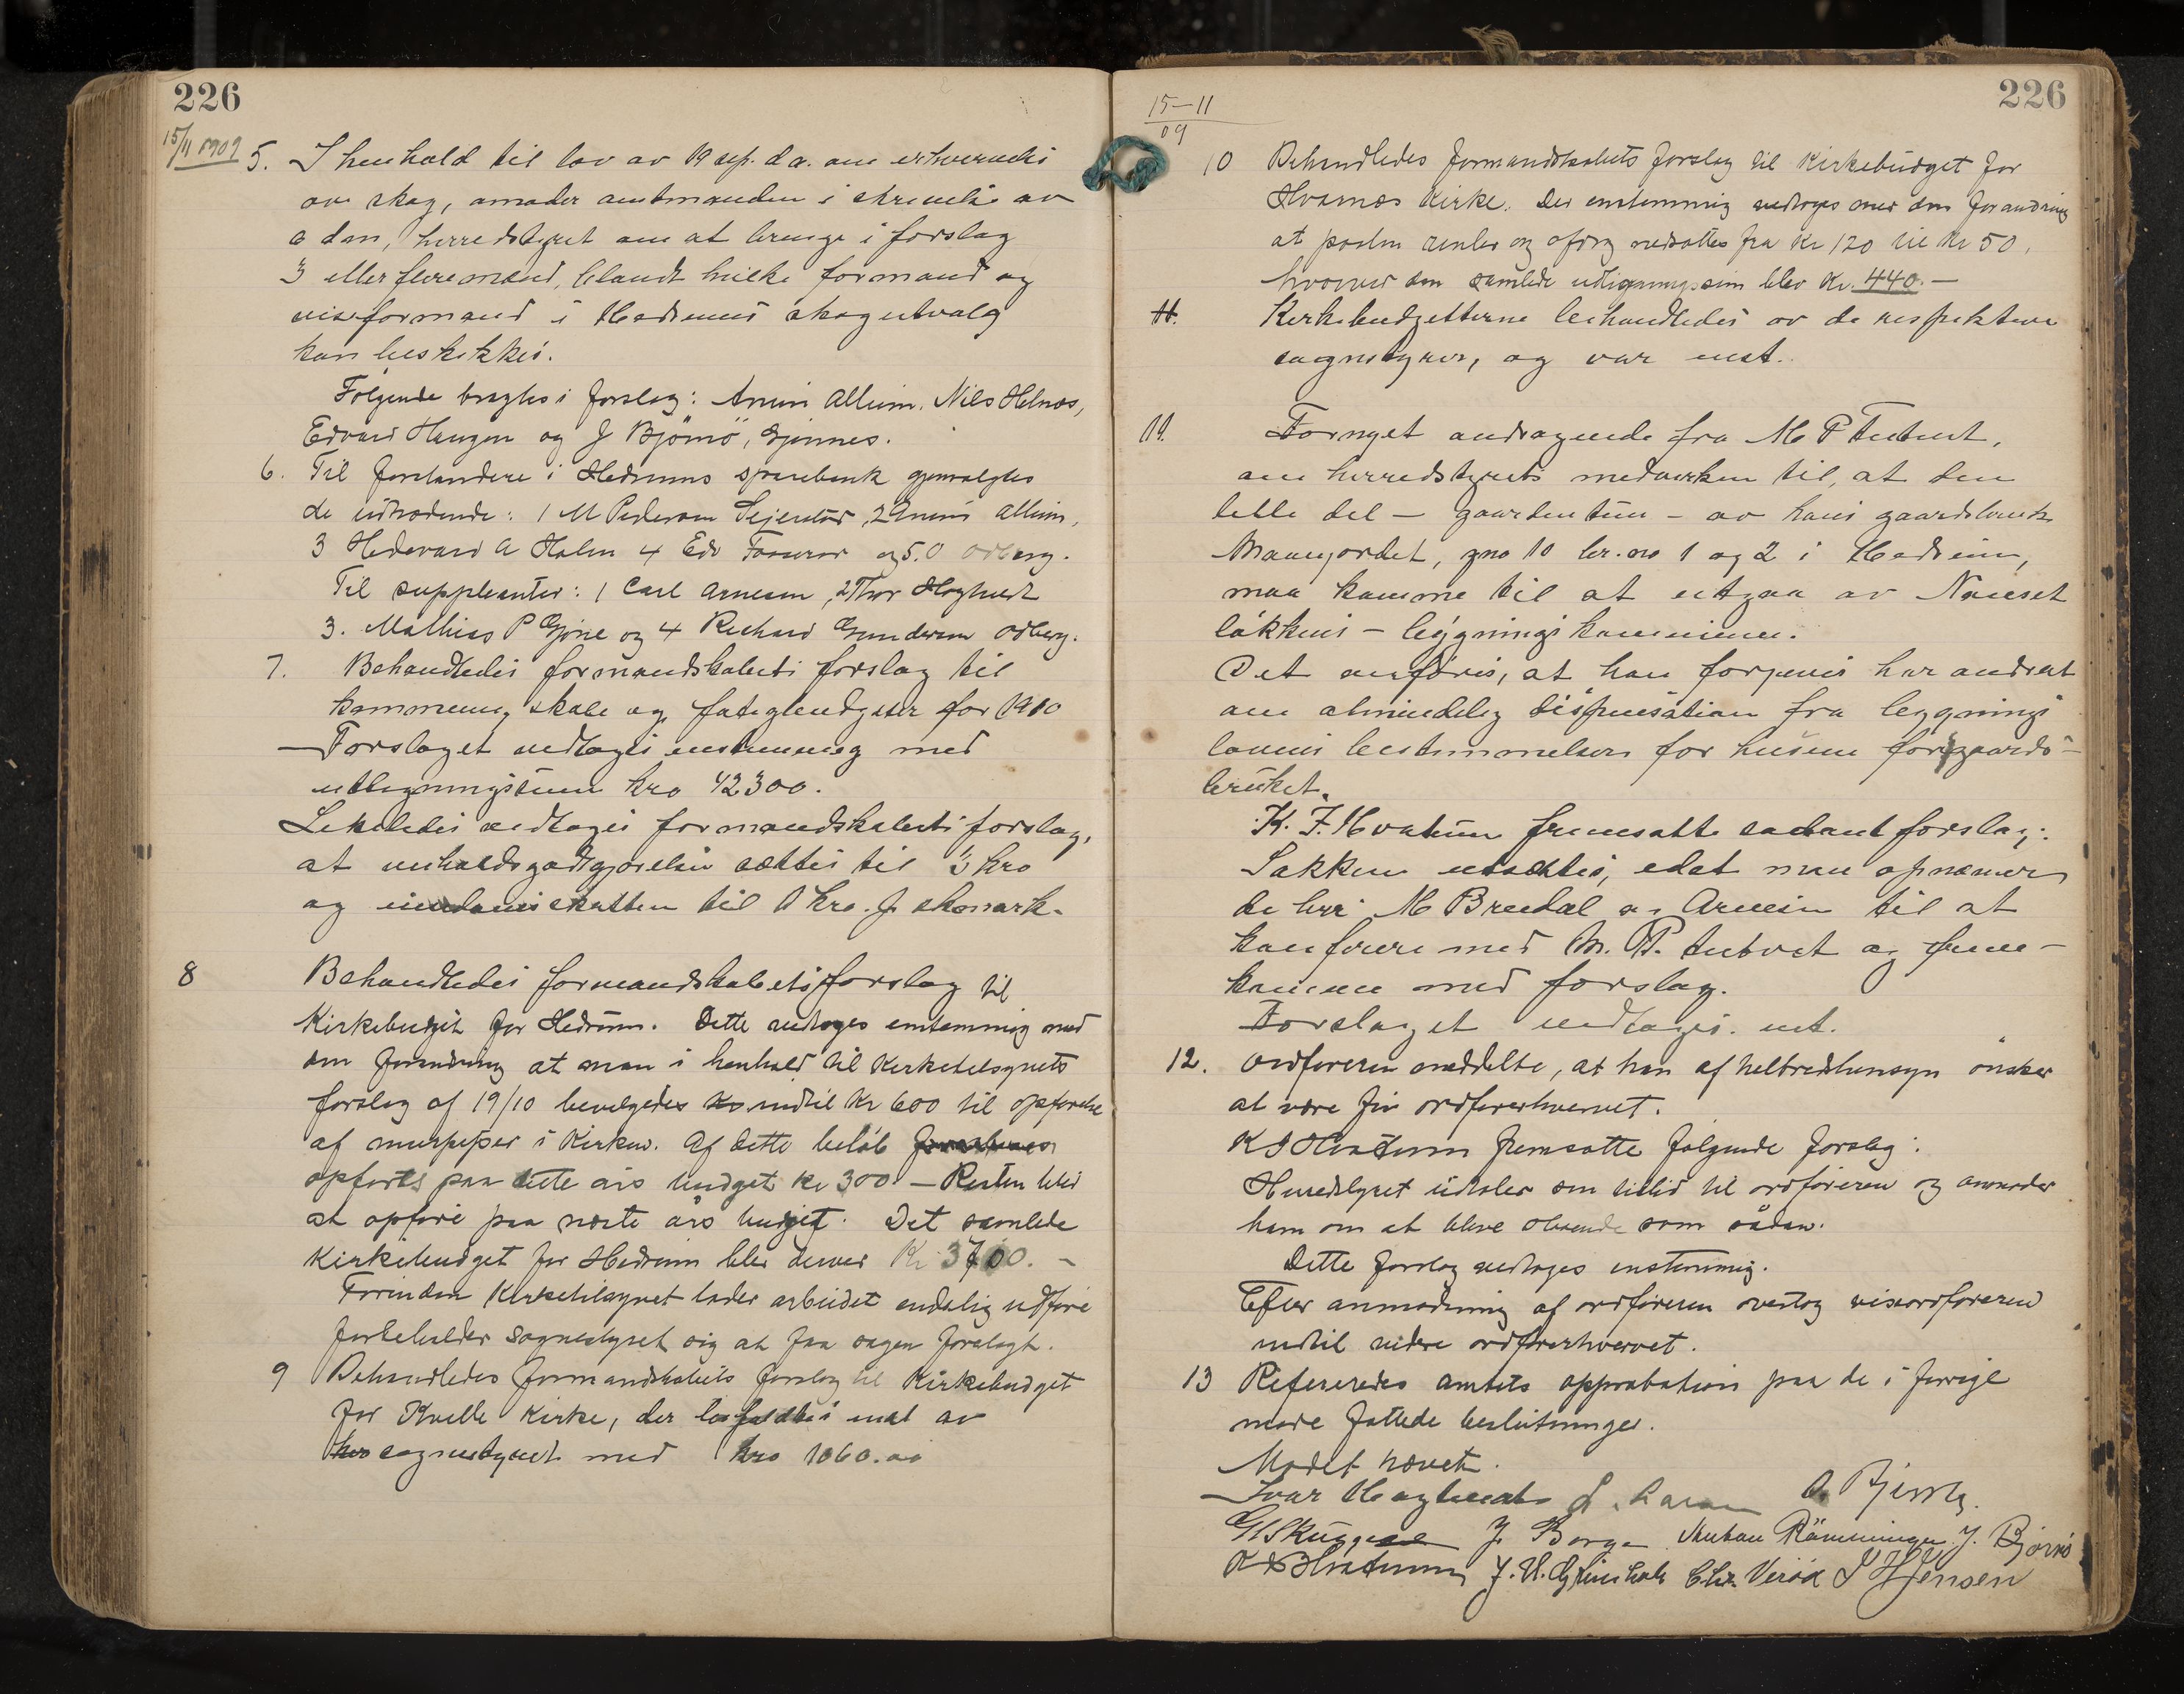 226
15/11 1909
5. I henhold til lov av 19 sep. d.a. om erhvervelse
av skog, anmoder amtmanden i skrivelse av
6 dm, herredstyret om at bringe i forslag
3 eller flere mænd, blandt hvilke formand og
viseformand i Hedrums skogutvalg
kan beskikkes.
Følgende bragtes i forslag: Anun Allum. Nils Helnæs,
Edvard Haugen og J Bjømø, Gjønnes.
6. Til forstandere i Hedrums sparebank gjenvalgtes
de uttrædende: 1 M Pedersen 2 Anun Allum,
3 Hedevard A Holm 4 Edv og 5. O Odberg.
Til suppleanter: 1 Carl Arnesen, 2 Thor Hoghuedt
3. Mathias P Gjone og 4 Richard Gundersen Odberg.
7. Behandledes formandskabets forslag til
kommune, skole og fatigbudgeter for 1910
Forslaget vedtages enstemmig med
utligningssum kro 42300.
Likeledes vedtages formandskabets forslag,
at underholdsgodtgjørelsen sættes til 3 kro
og eiendomsskatten til 1 kro. pr skmark.
8 Behandledes formandskabets forslag til
Kirkebudget for Hedrum. Dette vedtoges enstemmig med
den forandring at man i henhold til Kirketilsynets
forslag af 19/10 bevilgedes indtil Kr 600 til opførelse
af murpiper i Kirken. Af dette beløb
opføres paa dette års budget kr 300. — Resten blir
at opføre paa næste års budget. Det samlede
Kirkebudget for Hedrum blev derved Kr 3700. -
Forinden Kirketilsynet lader arbeidet endelig udføre
forbeholder Sognestyret sig at faa sagen forelagt.
9 Behandledes formandskabets forslag til Kirkebudget
for Kvelle Kirke, der besluttes enst av
sognestyret med kro 1060.00
226
15-11
09
10 Behandledes formandskabets forslag til Kirkebudget for
Hvarnes Kirke. Det enstemmig vedtoges med den forandring
at posten renter og afdrag nedsattes fra Kr 120 til Kr 50,
hvorved den samlede utligningssum blev Kr. 440.-
11. Kirkebudgetterne behandledes av de respektive
sognestyrer, og var enst.
11. Fornyet andragende fra M P Tutvet,
om herredstyrets medvirken til, at den
lille del - gaardentun - av hans gaardsbruk
Mauejordet, gno 10 br. no 1 og 2 i Hedrum,
maa komme til at utgaa av Nanset
løkkens - bygningskommune.
Det anføres, at han forgjeves har andrat
om almindelig dispensation fra bygnings
lovens bestemmelser for husene for gaards-
bruket.
K. F. Hvatum fremsatte sadant forslag:
Sakken utsættes, idet man opnævner
de herr M Bredal og Arvesen til at
konferere med M. P. Tutvet og frem-
komme med forslag.
Forslaget vedtages. ent.
12. Ordføreren meddelte, at han af helbredshensyn ønsker
at være fri ordførerhvervet.
K F Hvatum fremsatte følgende forslag:
Herredstyret udtaler sin tillid til ordføreren og anmoder
ham om at blive staaende som sådan.
Dette forslag vedtoges enstemmig.
Efter anmodning af ordføreren overtog viseordføreren
indtil videre ordførerhvervet.
13 Refereredes amtets approbation paa de i forrige
møde fattede beslutninger.
Mødet hævet.
Ivar Hoghuedt L. Larsen
G H Skuggedal J Borge Anton Rømmingen J. Bjørnø
K F Hvatum Chr. S H Jensen